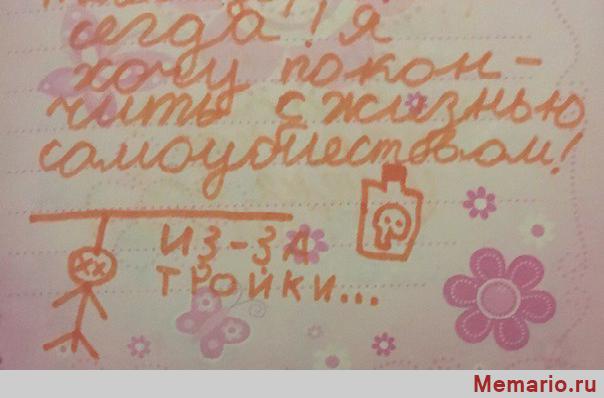 сегда!! я
хочу покон-
чить с жизнью
самоубиеством!
ИЗ-ЗА
ТРОЙКИ...
Memario.ru